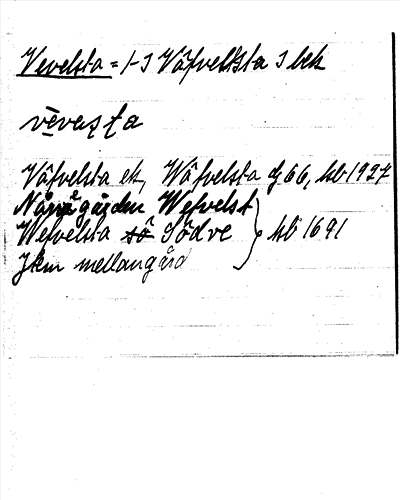 Vevelsta = 1-3 Väfvelsta 3 bek
vēvaṣṭa
Väfvelsta ek, Wäfvelsta dj 66, hb 1927
Norrgården Wefvelst
Wefvelsta så Södre } hb 1691
Jkm mellangård